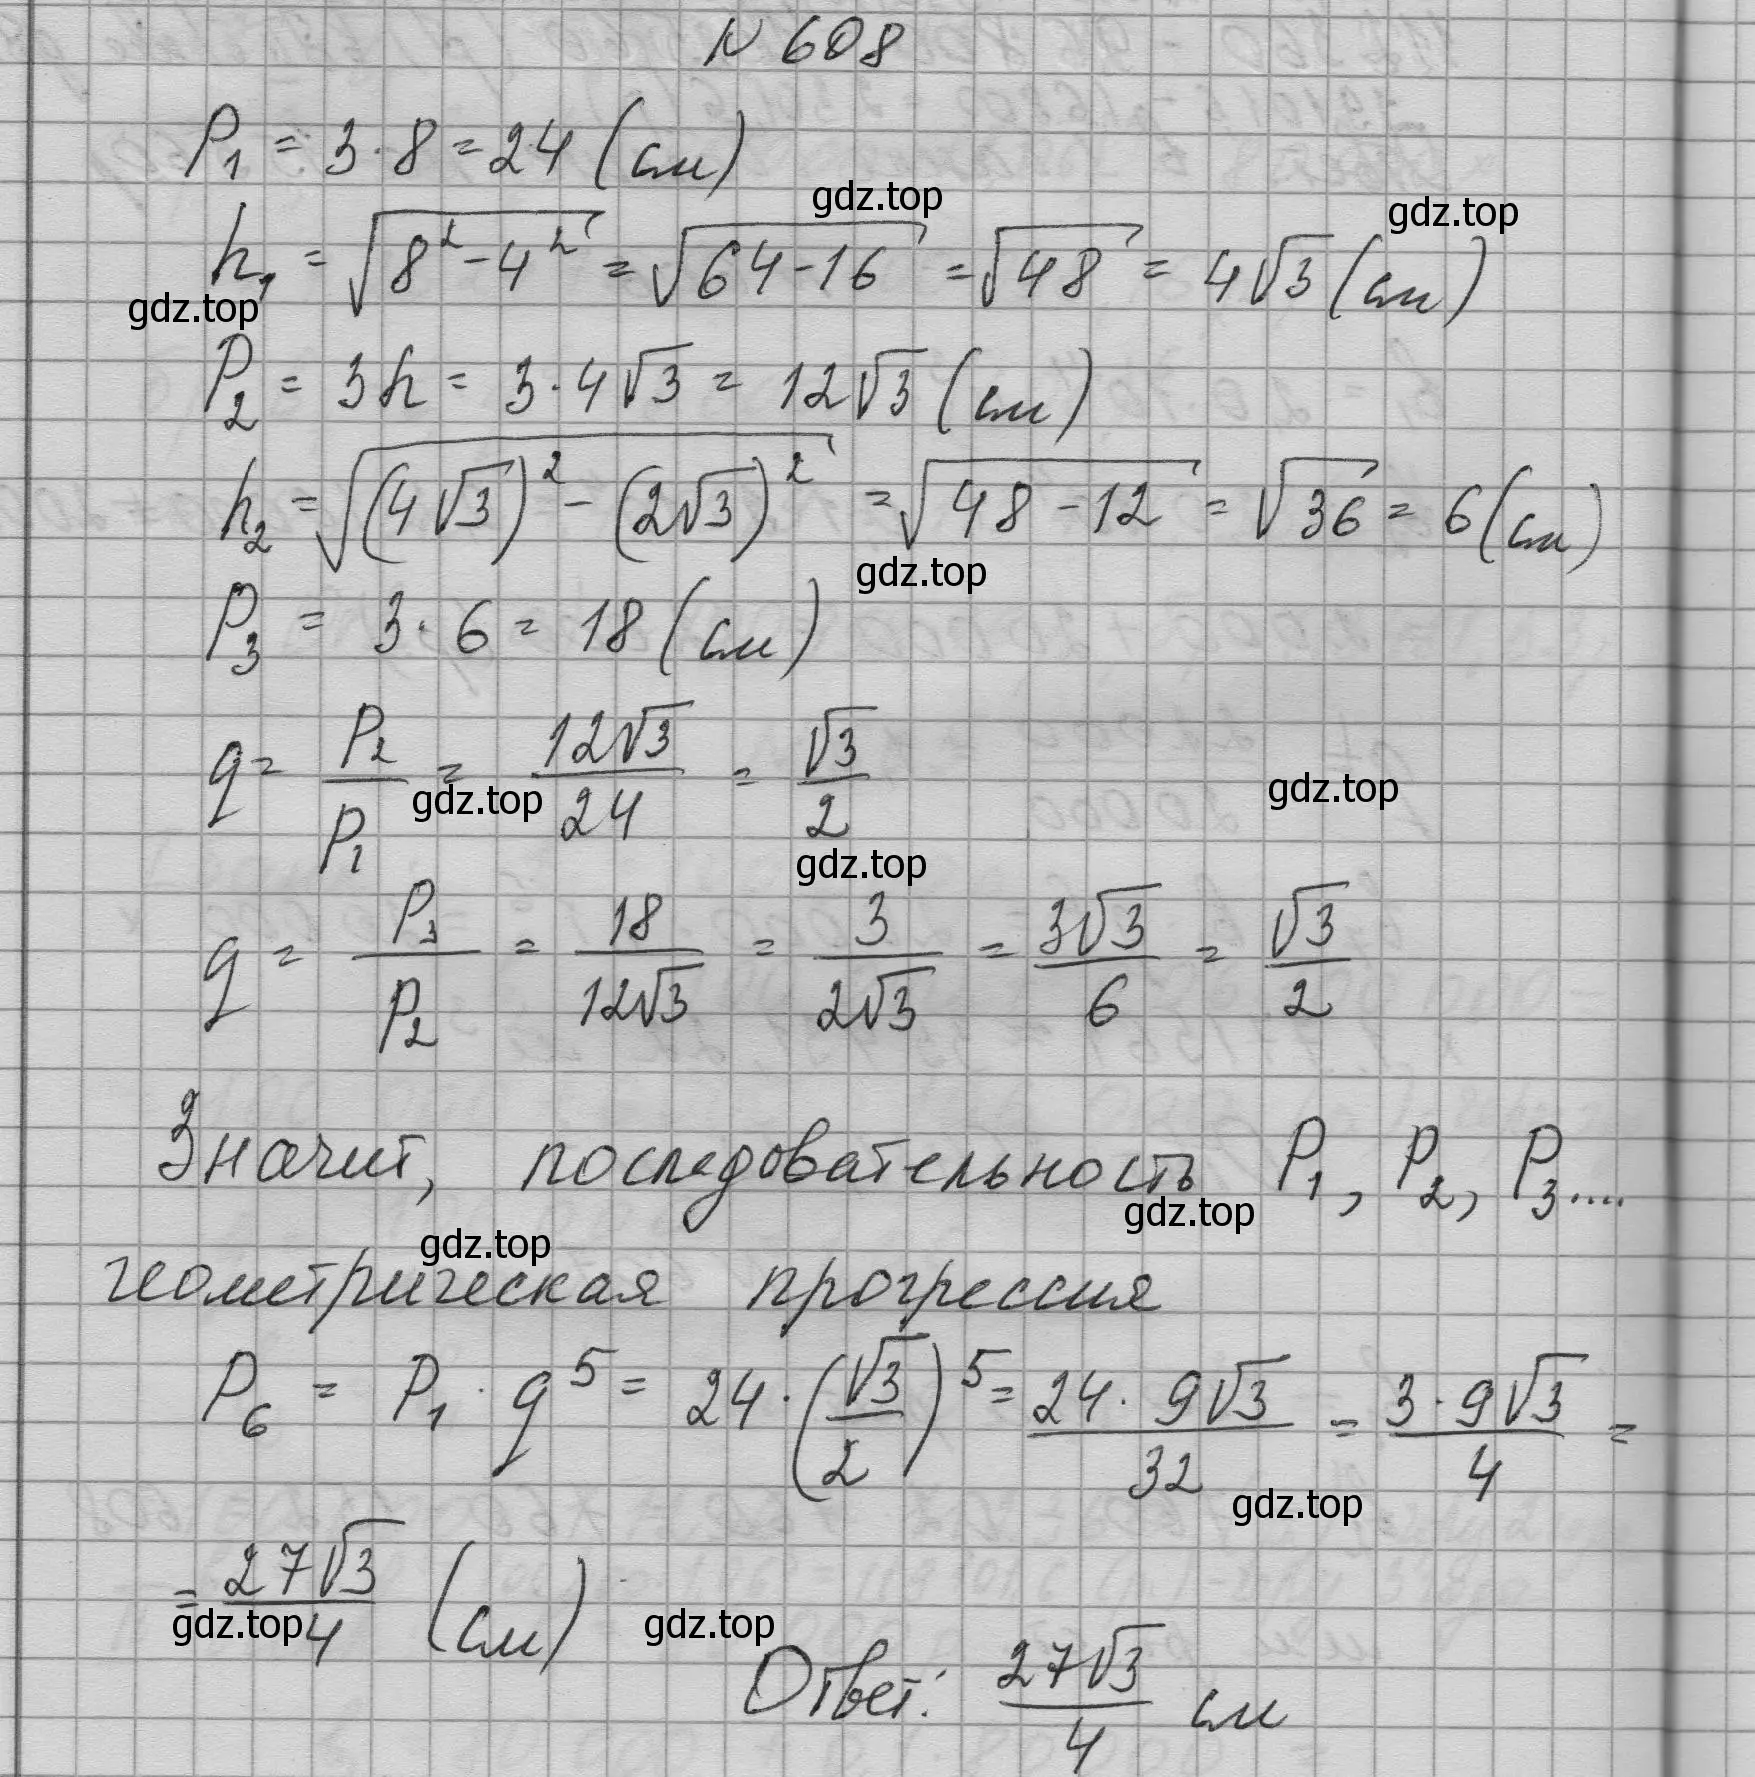 N 608
P₁ = 3·8 = 24 (см)
gdz.top
gdz.top
h₁ = √(8² - 4²) = √(64 - 16) = √48 = 4√3 (см)
gdz.top
P₂ = 3h = 3·4√3 = 12√3 (см)
h₂ = √((4√3)² - (2√3)²) = √(48 - 12) = √36 = 6 (см)
gdz.top
P₃ = 3·6 = 18 (см)
q = P₂/P₁ = 12√3/24 = √3/2
gdz.top
gdz.top
gdz.top
q = P₃/P₂ = 18/12√3 = 3/2√3 = 3√3/6 = √3/2
Значит, последовательность P₁, P₂, P₃....
gdz.top
gdz.top
геометрическая прогрессия
P₆ = P₁·q⁵ = 24·(√3/2)⁵ = 24·9√3/32 = 3·9√3/4 =
gdz.top
= 27√3/4 (см)
gdz.top
gdz.top
Ответ: 27√3/4 см